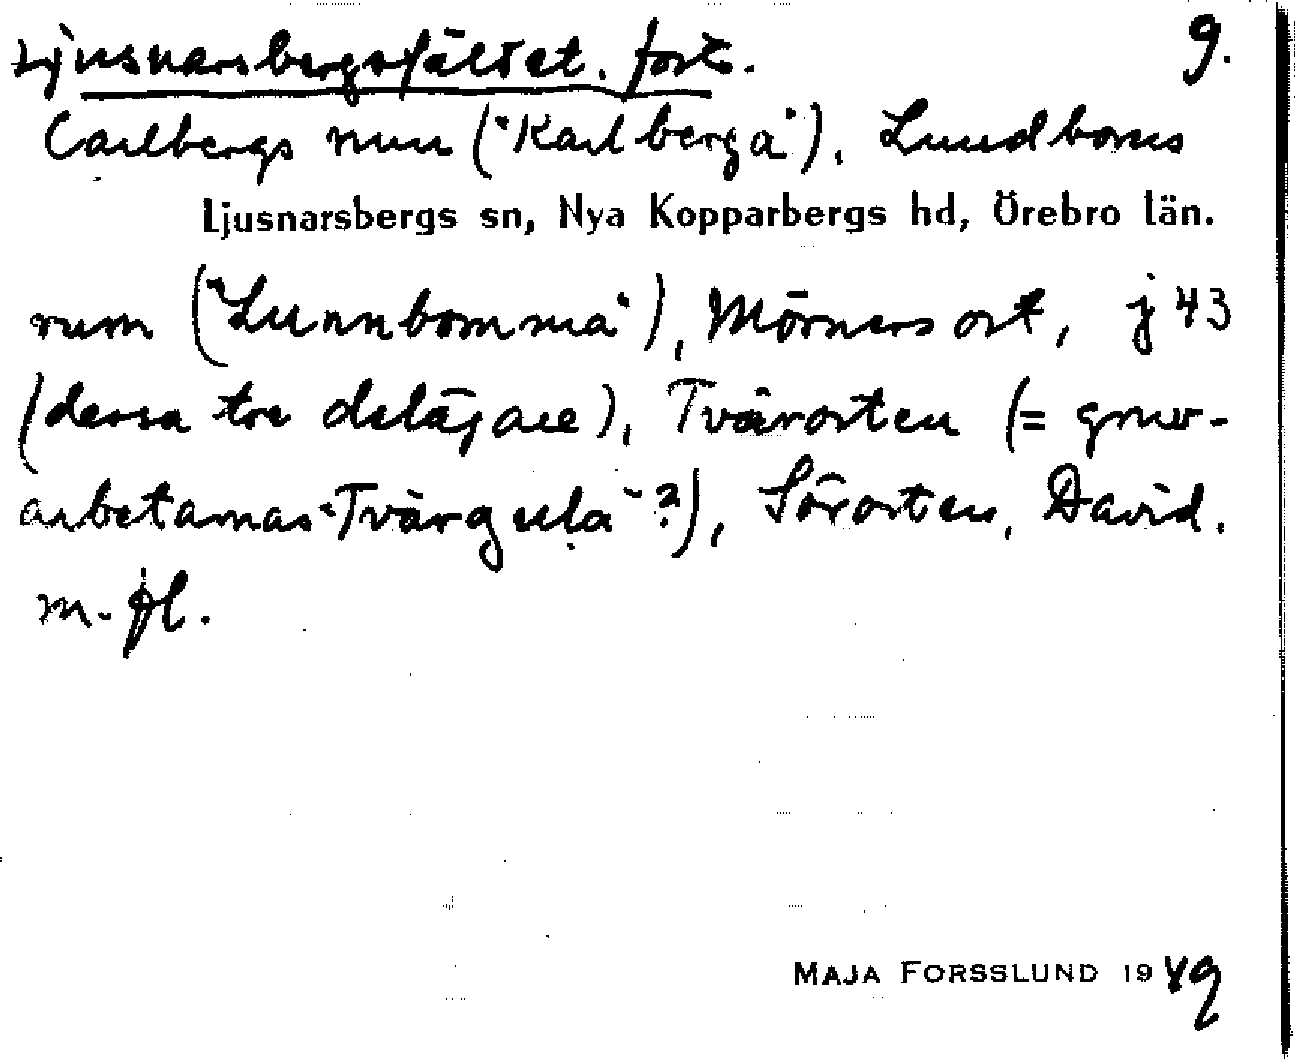 Ljusnarsbergsfältet. forts. 9.
Carlbergs rum ("Karlberga"), Lundboms
Ljusnarsbergs sn, Nya Kopparbergs hd, Örebro län.
rum ("Lunnbomma"), Mörners ort, j 43
(dessa tre delägare), Tvärorten (= gruv-
arbetarnas "Tvärgula"?), Sörorten, David.
m. fl.
MAJA FORSSLUND 1949